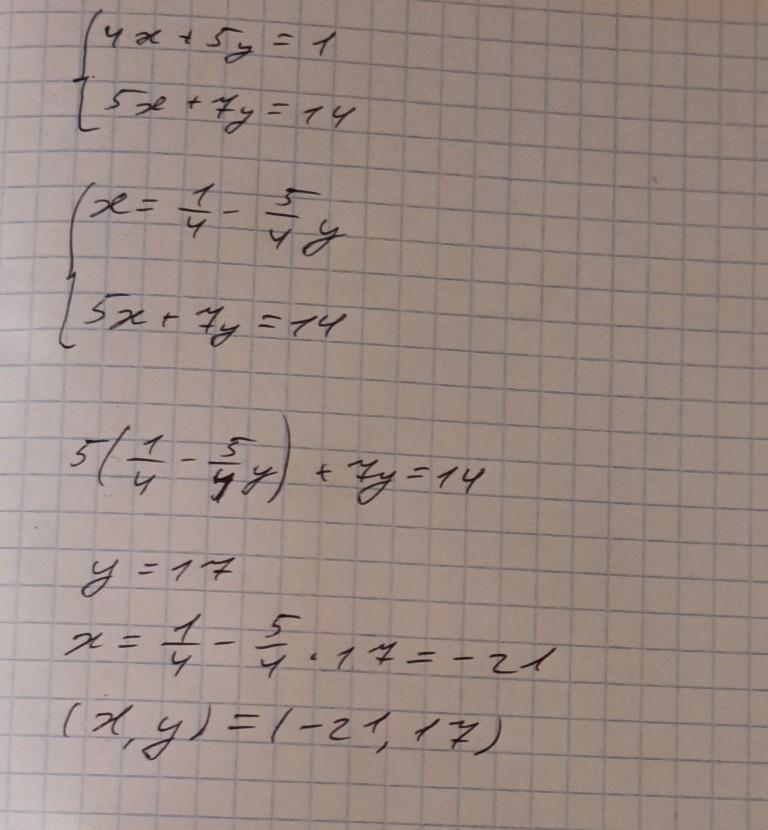 4x + 5y = 1
5x + 7y = 14
x = 1/4 - 5/4 y
5x + 7y = 14
5(1/4 - 5/4 y) + 7y = 14
y = 17
x = 1/4 - 5/4 · 17 = -21
(x, y) = (-21, 17)